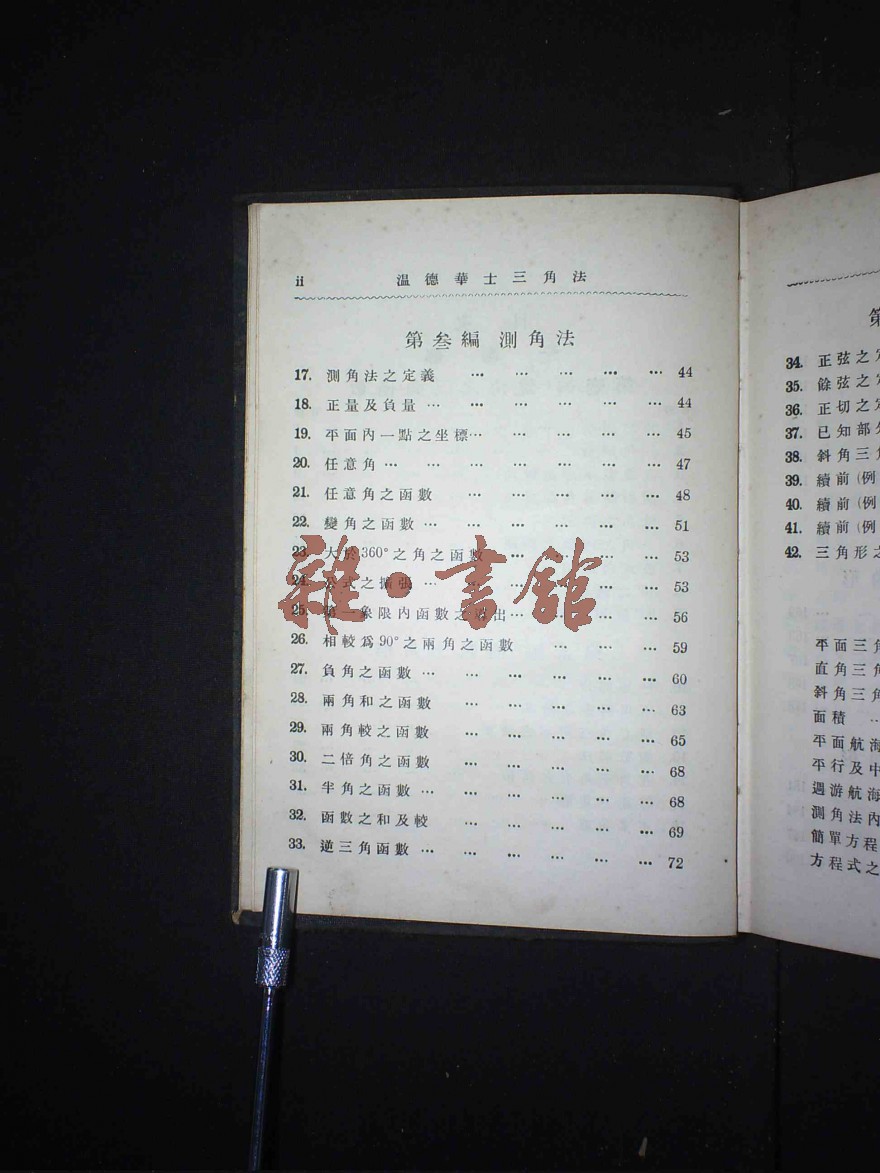 ii 溫德華士三角法
第叁編 測角法
17. 測角法之定義 … … … … … 44
18. 正量及負量 … … … … … … 44
19. 平面內一點之坐標… … … … … 45
20. 任意角… … … … … … 47
21. 任意角之函數 … … … … … 48
22. 變角之函數 … … … … … … 51
23. 大於360°之角之函數 … … … … 53
24. 公式之擴張 … … … … … … 53
25. 第一象限內函數之 出… … … … 56
26. 相較爲90°之兩角之函數 … … … 59
27. 負角之函數 … … … … … … 60
28. 兩角和之函數 … … … … … 63
29. 兩角較之函數 … … … … … 65
30. 二倍角之函數 … … … … … 68
31. 半角之函數 … … … … … … 68
32. 函數之和及較 … … … … … 69
33. 逆三角函數 … … … … … … 72
雜·書館
第
34. 正弦之定
35. 餘弦之定
36. 正切之定
37. 已知部分
38. 斜角三角
39. 續前(例
40. 續前(例
41. 續前(例
42. 三角形之
…
平面三角
直角三角
斜角三角
面積 …
平面航海
平行及中
遇游航海
測角法內
簡單方程
方程式之